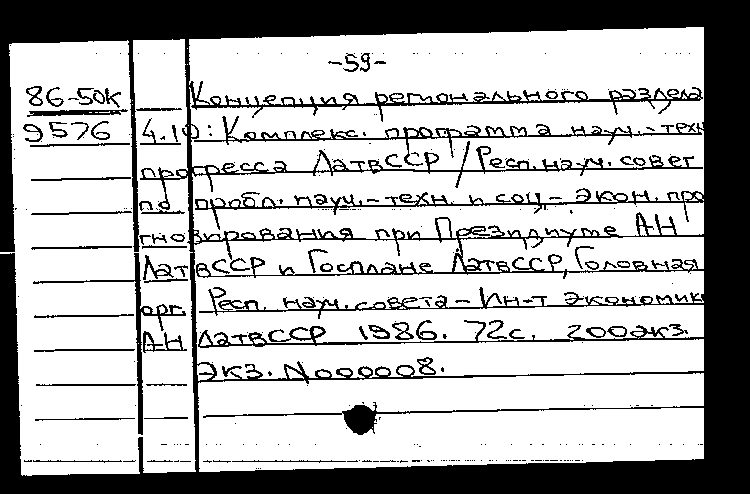 -59-
86-50к Концепция регионального раздела
9576 4.10: Комплекс. программа науч.-техн
прогресса ЛатвССР / Респ. науч. совет
по пробл. науч.-техн. и соц.-экон. про
гнозирования при Президиуме АН
ЛатвССР и Госплане ЛатвССР, Головная
орг. Респ. науч. совета - Ин-т экономик
АН ЛатвССР 1986. 72с. 200экз.
Экз. N000008.